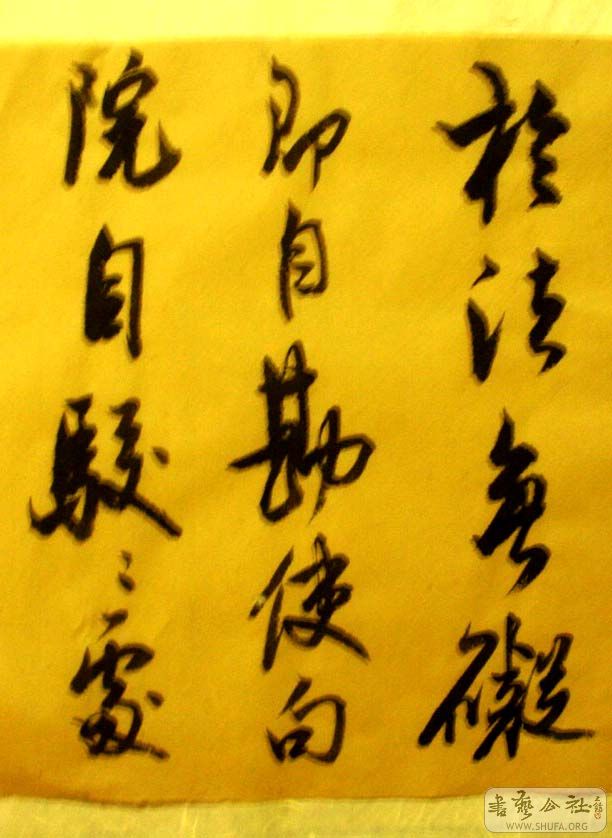 於法無礙
即自勘使向
院自駁〻處
書藝公社
WWW.SHUFA.ORG